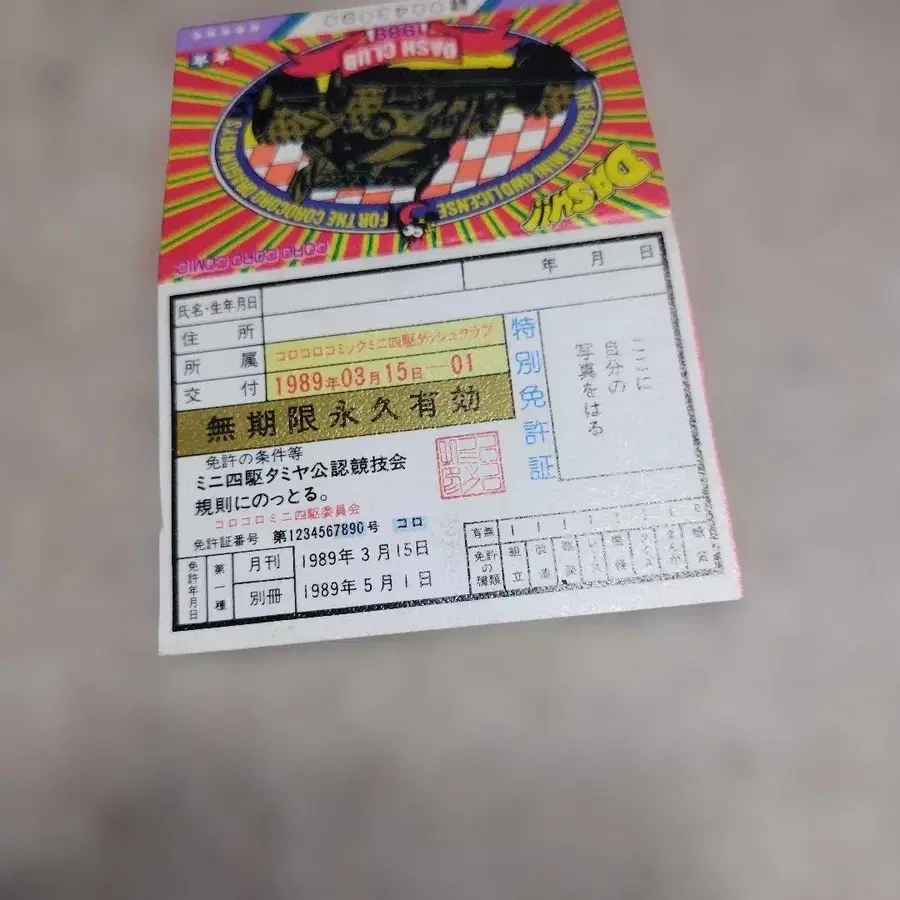 0043090
DASH CLUB
1989
FOR THE COROCORO
LICENSE
DASH!!
CORO CORO COMIC
氏名・生年月日
年 月 日
住所
所属 コロコロコミックミニ四駆ダッシュクラブ
交付 1989年03月15日―01
無期限永久有効
特別免許証
ここに
自分の
写真をはる
免許の条件等
ミニ四駆タミヤ公認競技会
規則にのっとる。
コロコロミニ四駆委員会
免許証番号 第1234567890号 コロ
免許年月日 第一種
月刊 1989年3月15日
別冊 1989年5月1日
免許の種類
組立